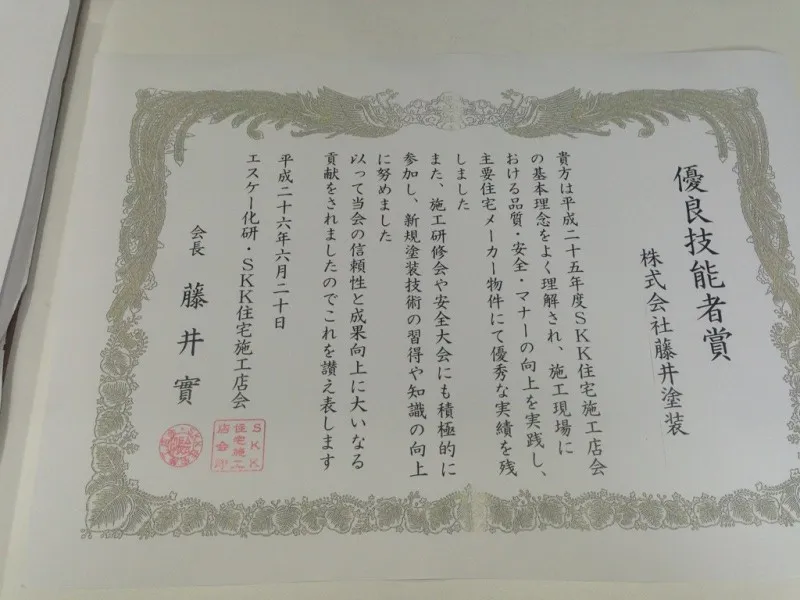 優良技能者賞
株式会社藤井塗装
貴方は平成二十五年度SKK住宅施工店会
の基本理念をよく理解され、施工現場に
おける品質・安全・マナーの向上を実践し、
主要住宅メーカー物件にて優秀な実績を残
しました
また、施工研修会や安全大会にも積極的に
参加し、新規塗装技術の習得や知識の向上
に努めました
以って当会の信頼性と成果向上に大いなる
貢献をされましたのでこれを讃え表します
平成二十六年六月二十日
エスケー化研・SKK住宅施工店会
会長 藤井實
SKK
住宅施工
店会印